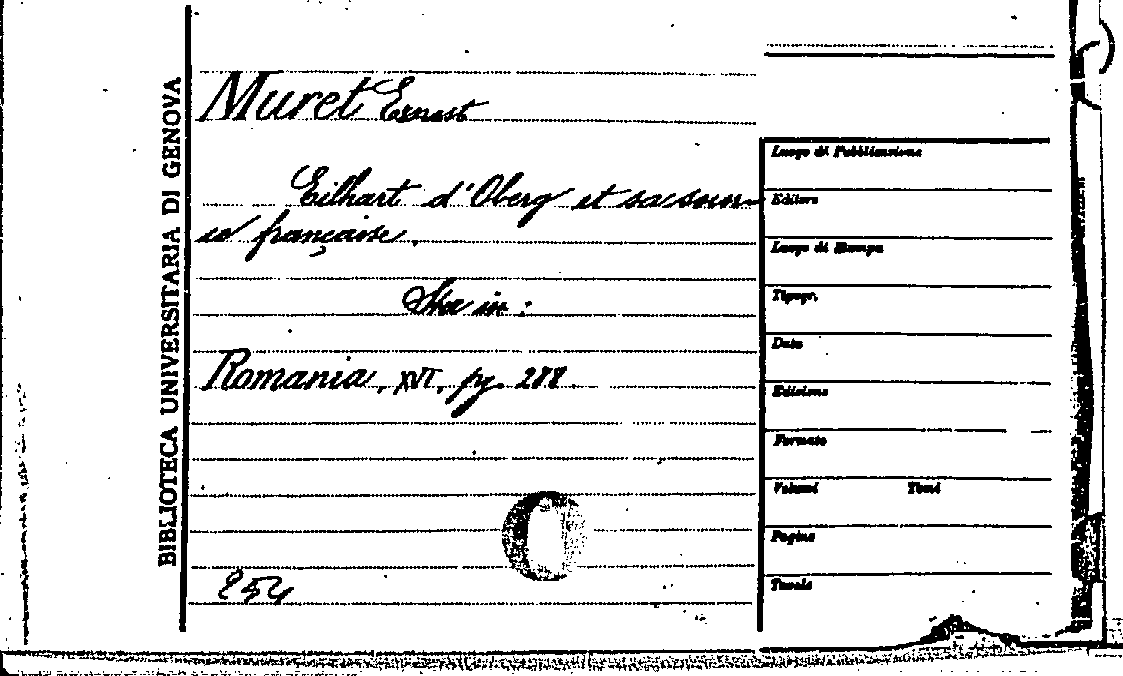 BIBLIOTECA UNIVERSITARIA DI GENOVA
Muret Ernest
Eilhart d'Oberg et sa sour-
ce française.
Sta in:
Romania, XVI, pg. 288.
254
Luogo di Pubblicazione
Editore
Luogo di Stampa
Tipogr.
Data
Edizione
Formato
Volumi Tomi
Pagine
Tavole